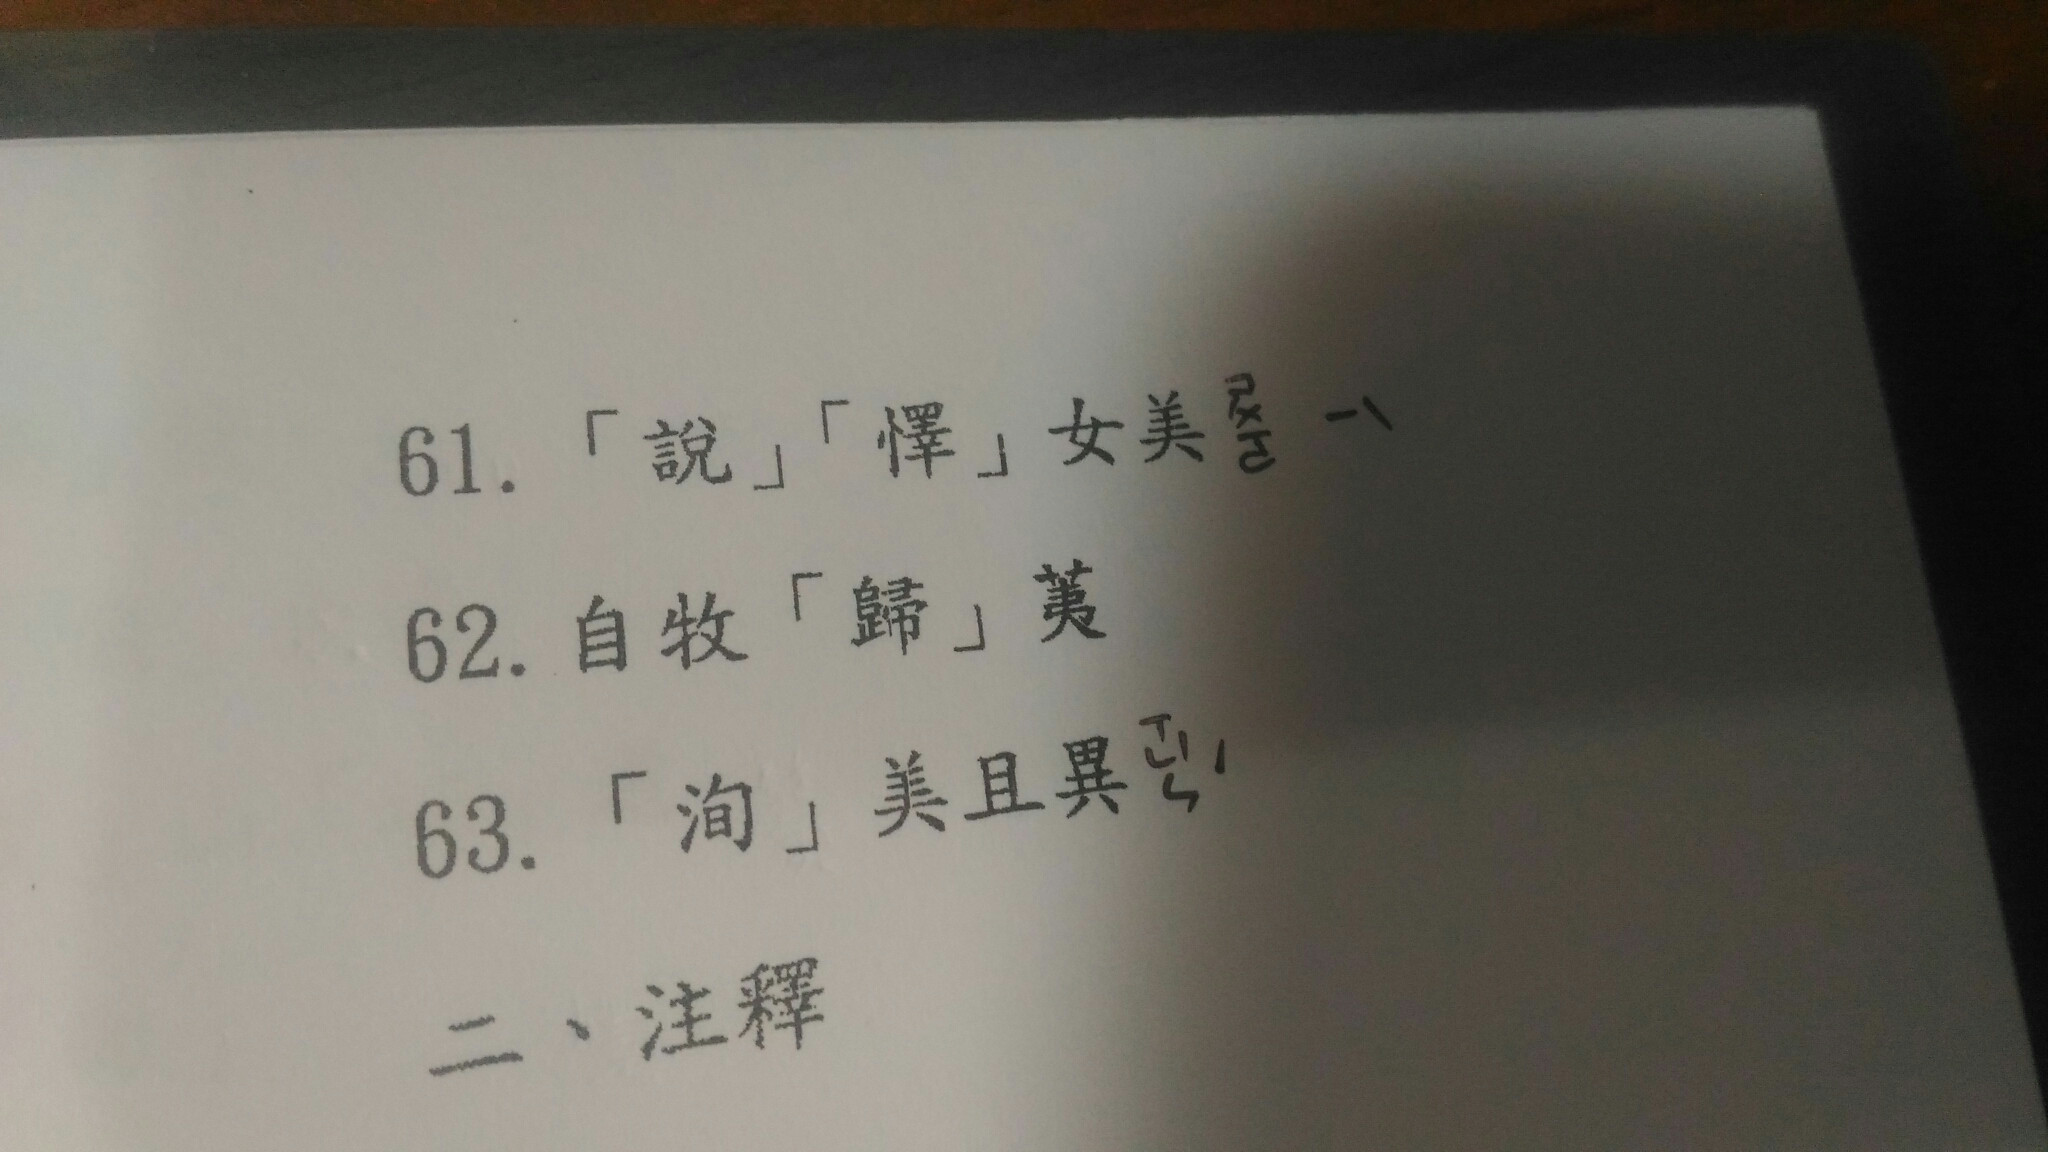 61.「說」「懌」女美
62.自牧「歸」荑
63.「洵」美且異
二、注釋